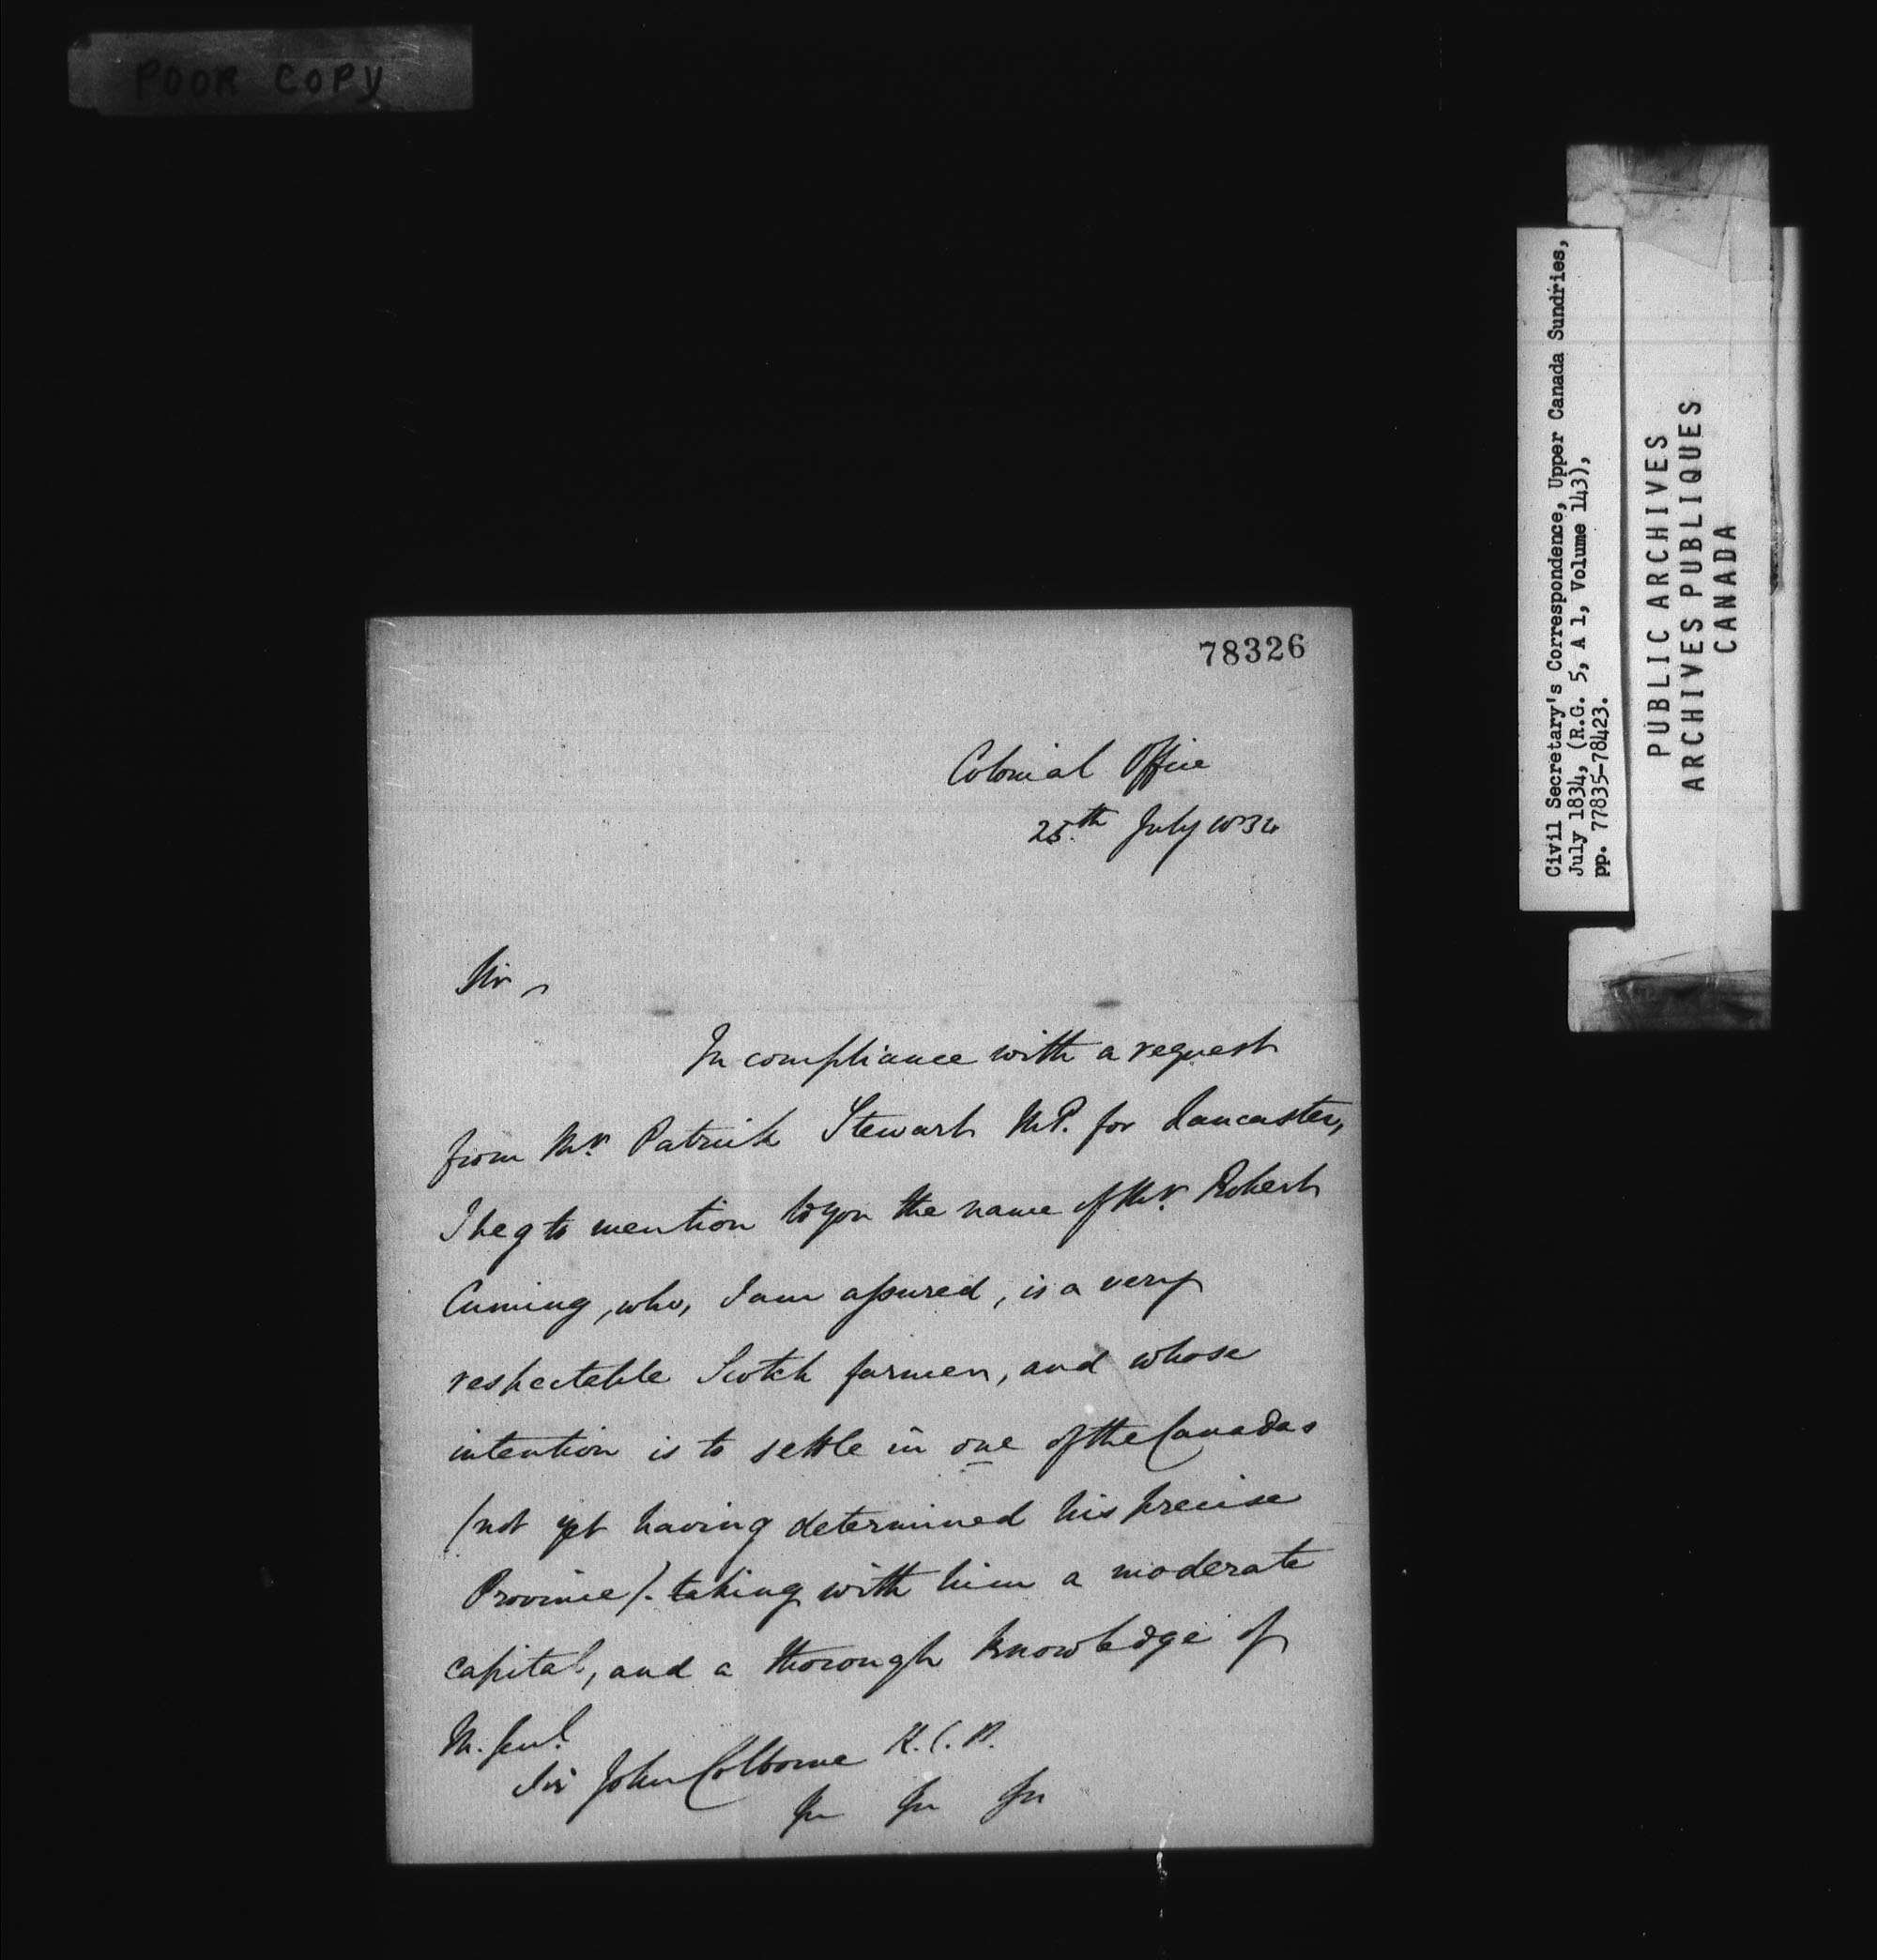 POOR COPY
Civil Secretary's Correspondence, Upper Canada Sundries,
July 1834, (R.G. 5, A 1, Volume 143),
pp. 77835-78423.
PUBLIC ARCHIVES
ARCHIVES PUBLIQUES
CANADA
78326
Colonial Office
25th July 1834
Sir,
In compliance with a request
from Mr. Patrick Stewart MP. for Lancaster,
I beg to mention to you the name of Mr. Robert
Cuming, who, I am assured, is a very
respectable Scotch farmer, and whose
intention is to settle in one of the Canadas
(not yet having determined his precise
Province). taking with him a moderate
capital, and a thorough knowledge of
M. Genl.
Sir John Colborne K.C.B.